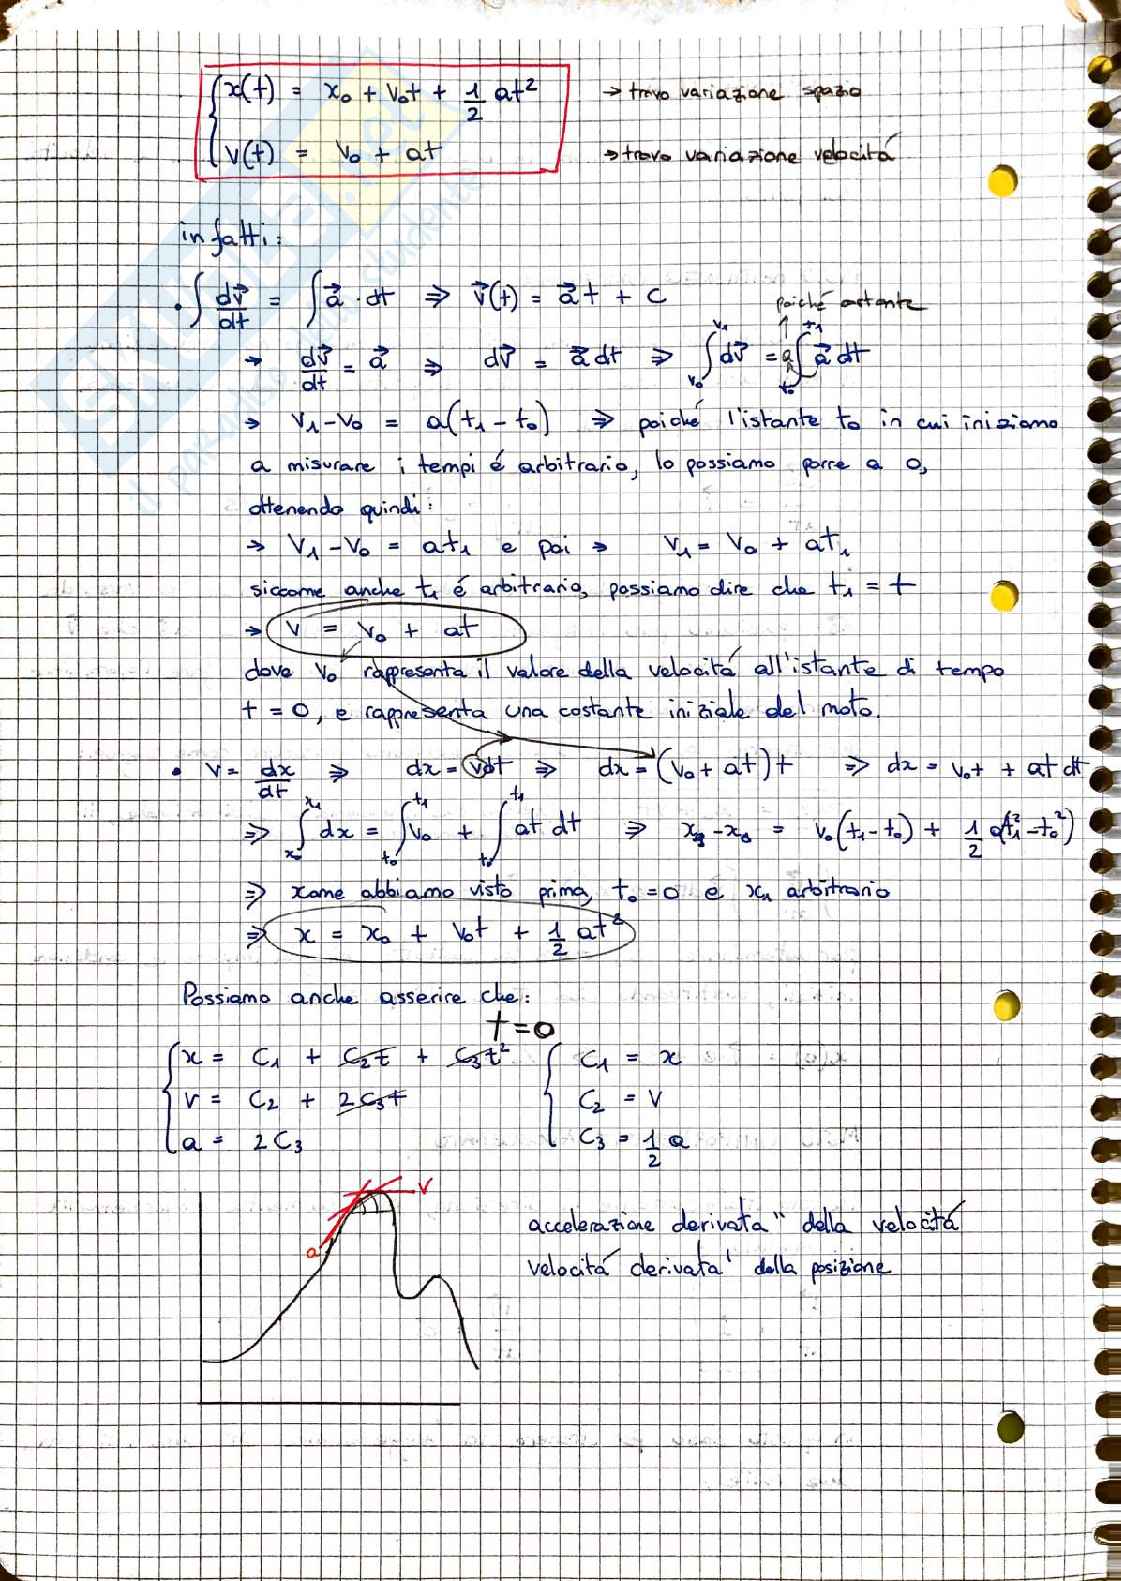 x(t) = x₀ + v₀t + 1/2 at² → trovo variazione spazio
v(t) = v₀ + at → trovo variazione velocitá
infatti:
• ∫ dv⃗/dt = ∫ a⃗ · dt ⇒ v⃗(t) = a⃗t + c
poiché costante
→ dv⃗/dt = a⃗ ⇒ dv⃗ = a⃗ dt ⇒ ∫_{v₀}^{v₁} dv⃗ = a ∫_{t₀}^{t₁} a⃗ dt
→ v₁ - v₀ = a(t₁ - t₀) ⇒ poiché l'istante t₀ in cui iniziamo
a misurare i tempi é arbitrario, lo possiamo porre a 0,
ottenendo quindi:
→ v₁ - v₀ = at₁ e poi → v₁ = v₀ + at₁
siccome anche t₁ é arbitrario, possiamo dire che t₁ = t
→ v = v₀ + at
dove v₀ rappresenta il valore della velocitá all'istante di tempo
t = 0, e rappresenta una costante iniziale del moto.
• v = dx/dt ⇒ dx = vdt ⇒ dx = (v₀ + at)t ⇒ dx = v₀t + at dt
⇒ ∫_{x₀}^{x₁} dx = ∫_{t₀}^{t₁} v₀ + ∫_{t₀}^{t₁} at dt ⇒ x₁ - x₀ = v₀(t₁ - t₀) + 1/2 a(t₁² - t₀²)
⇒ come abbiamo visto prima, t₀ = 0 e x₁ arbitrario
⇒ x = x₀ + v₀t + 1/2 at²
Possiamo anche asserire che:
t = 0
x = C₁ + C₂t + C₃t² C₁ = x
v = C₂ + 2C₃t C₂ = v
a = 2C₃ C₃ = 1/2 a
v
a
accelerazione derivata'' della velocitá
velocitá derivata' della posizione